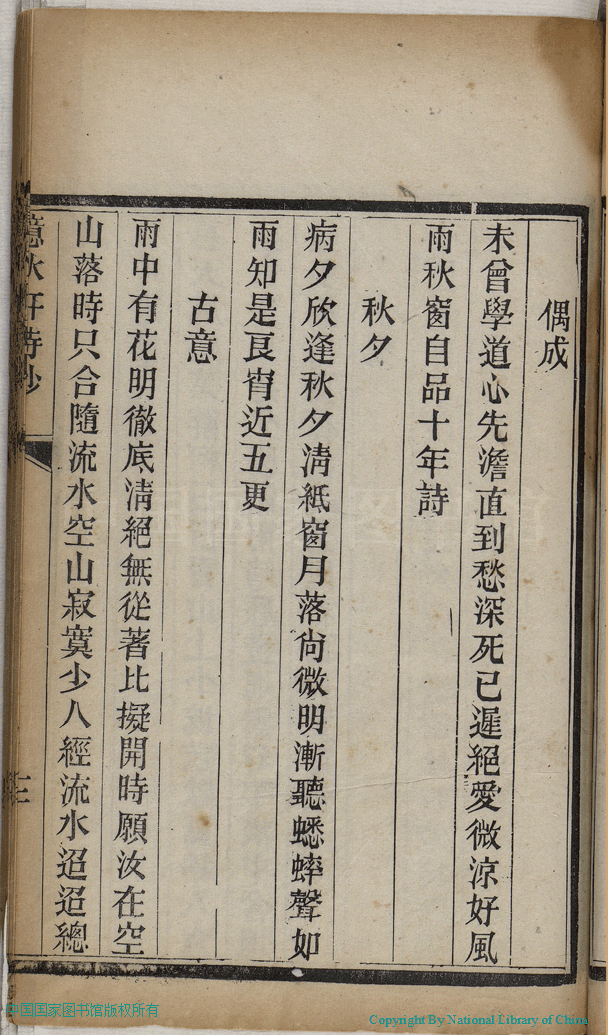 偶成
未曾學道心先澹直到愁深死已遲絕愛微涼好風
雨秋窗自品十年詩
秋夕
病夕欣逢秋夕淸紙窗月落尙微明漸聽蟋蟀聲如
雨知是良宵近五更
古意
雨中有花明徹底淸絕無從著比擬開時願汝在空
山落時只合隨流水空山寂寞少人經流水迢迢總
憶水軒詩鈔
中国国家图书馆版权所有
Copyright By National Library of China